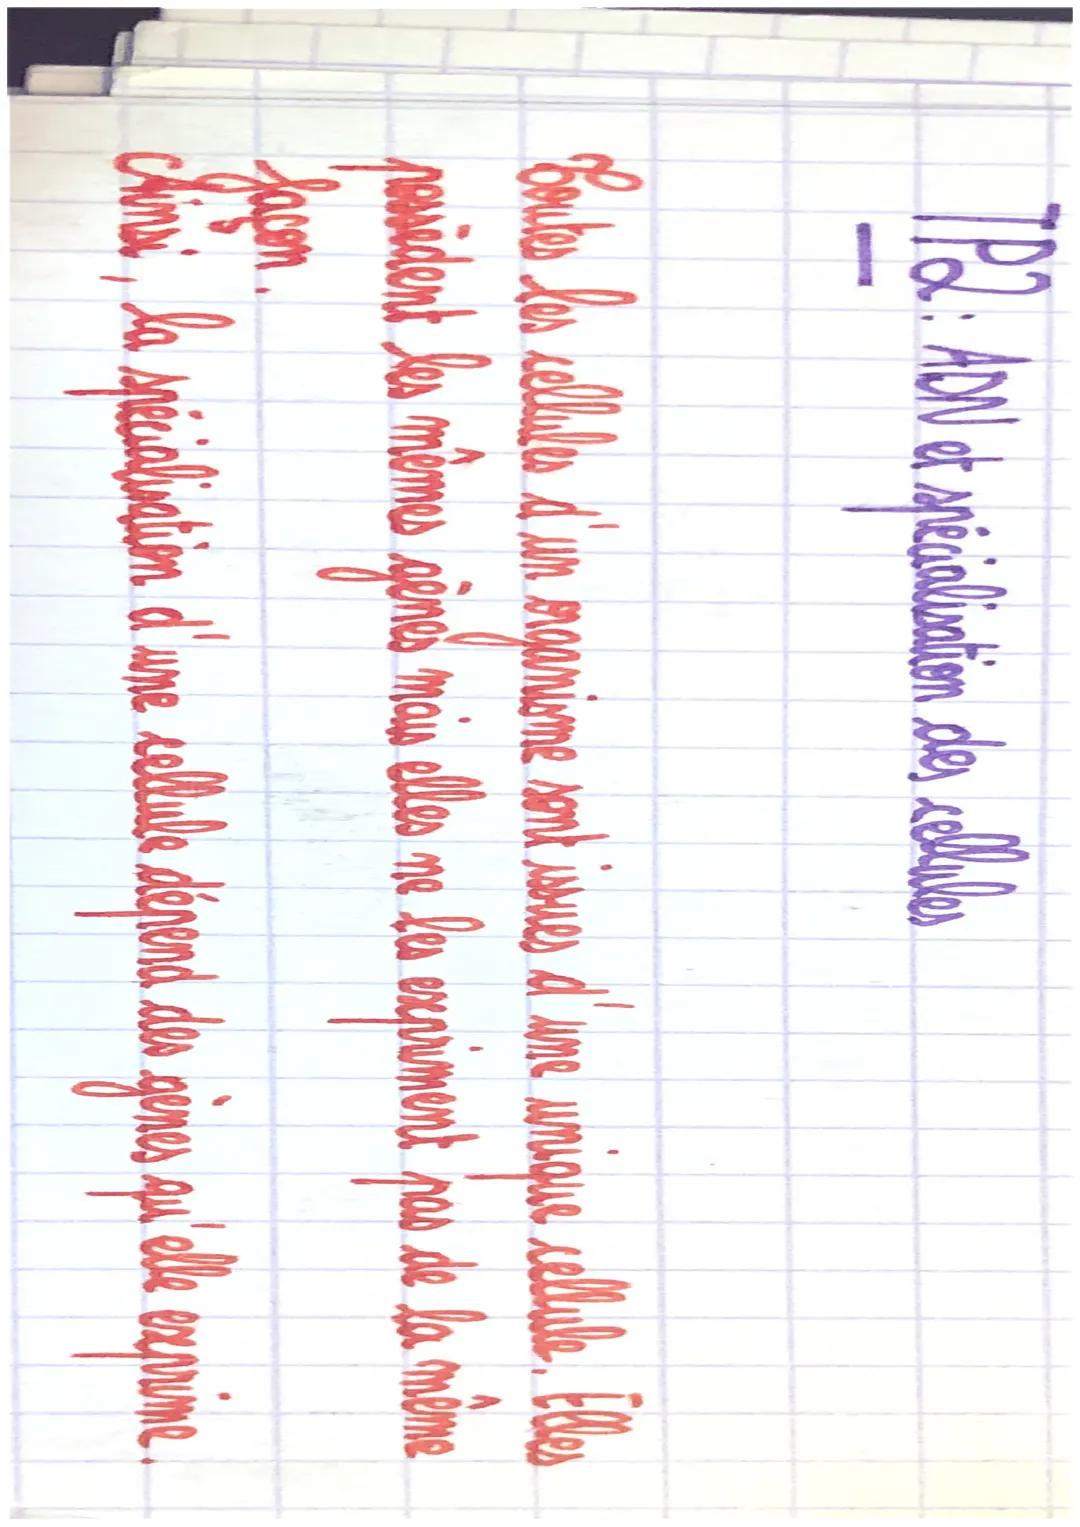 TP2: ADN et spécialisation des cellules
Toutes les cellules d'un organisme sont issues d'une unique cellule. Elles
possèdent les mêmes gènes mais elles ne les expriment pas de la même
façon.
Ainsi, la spécialisation d'une cellule dépend des gènes qu'elle exprime.